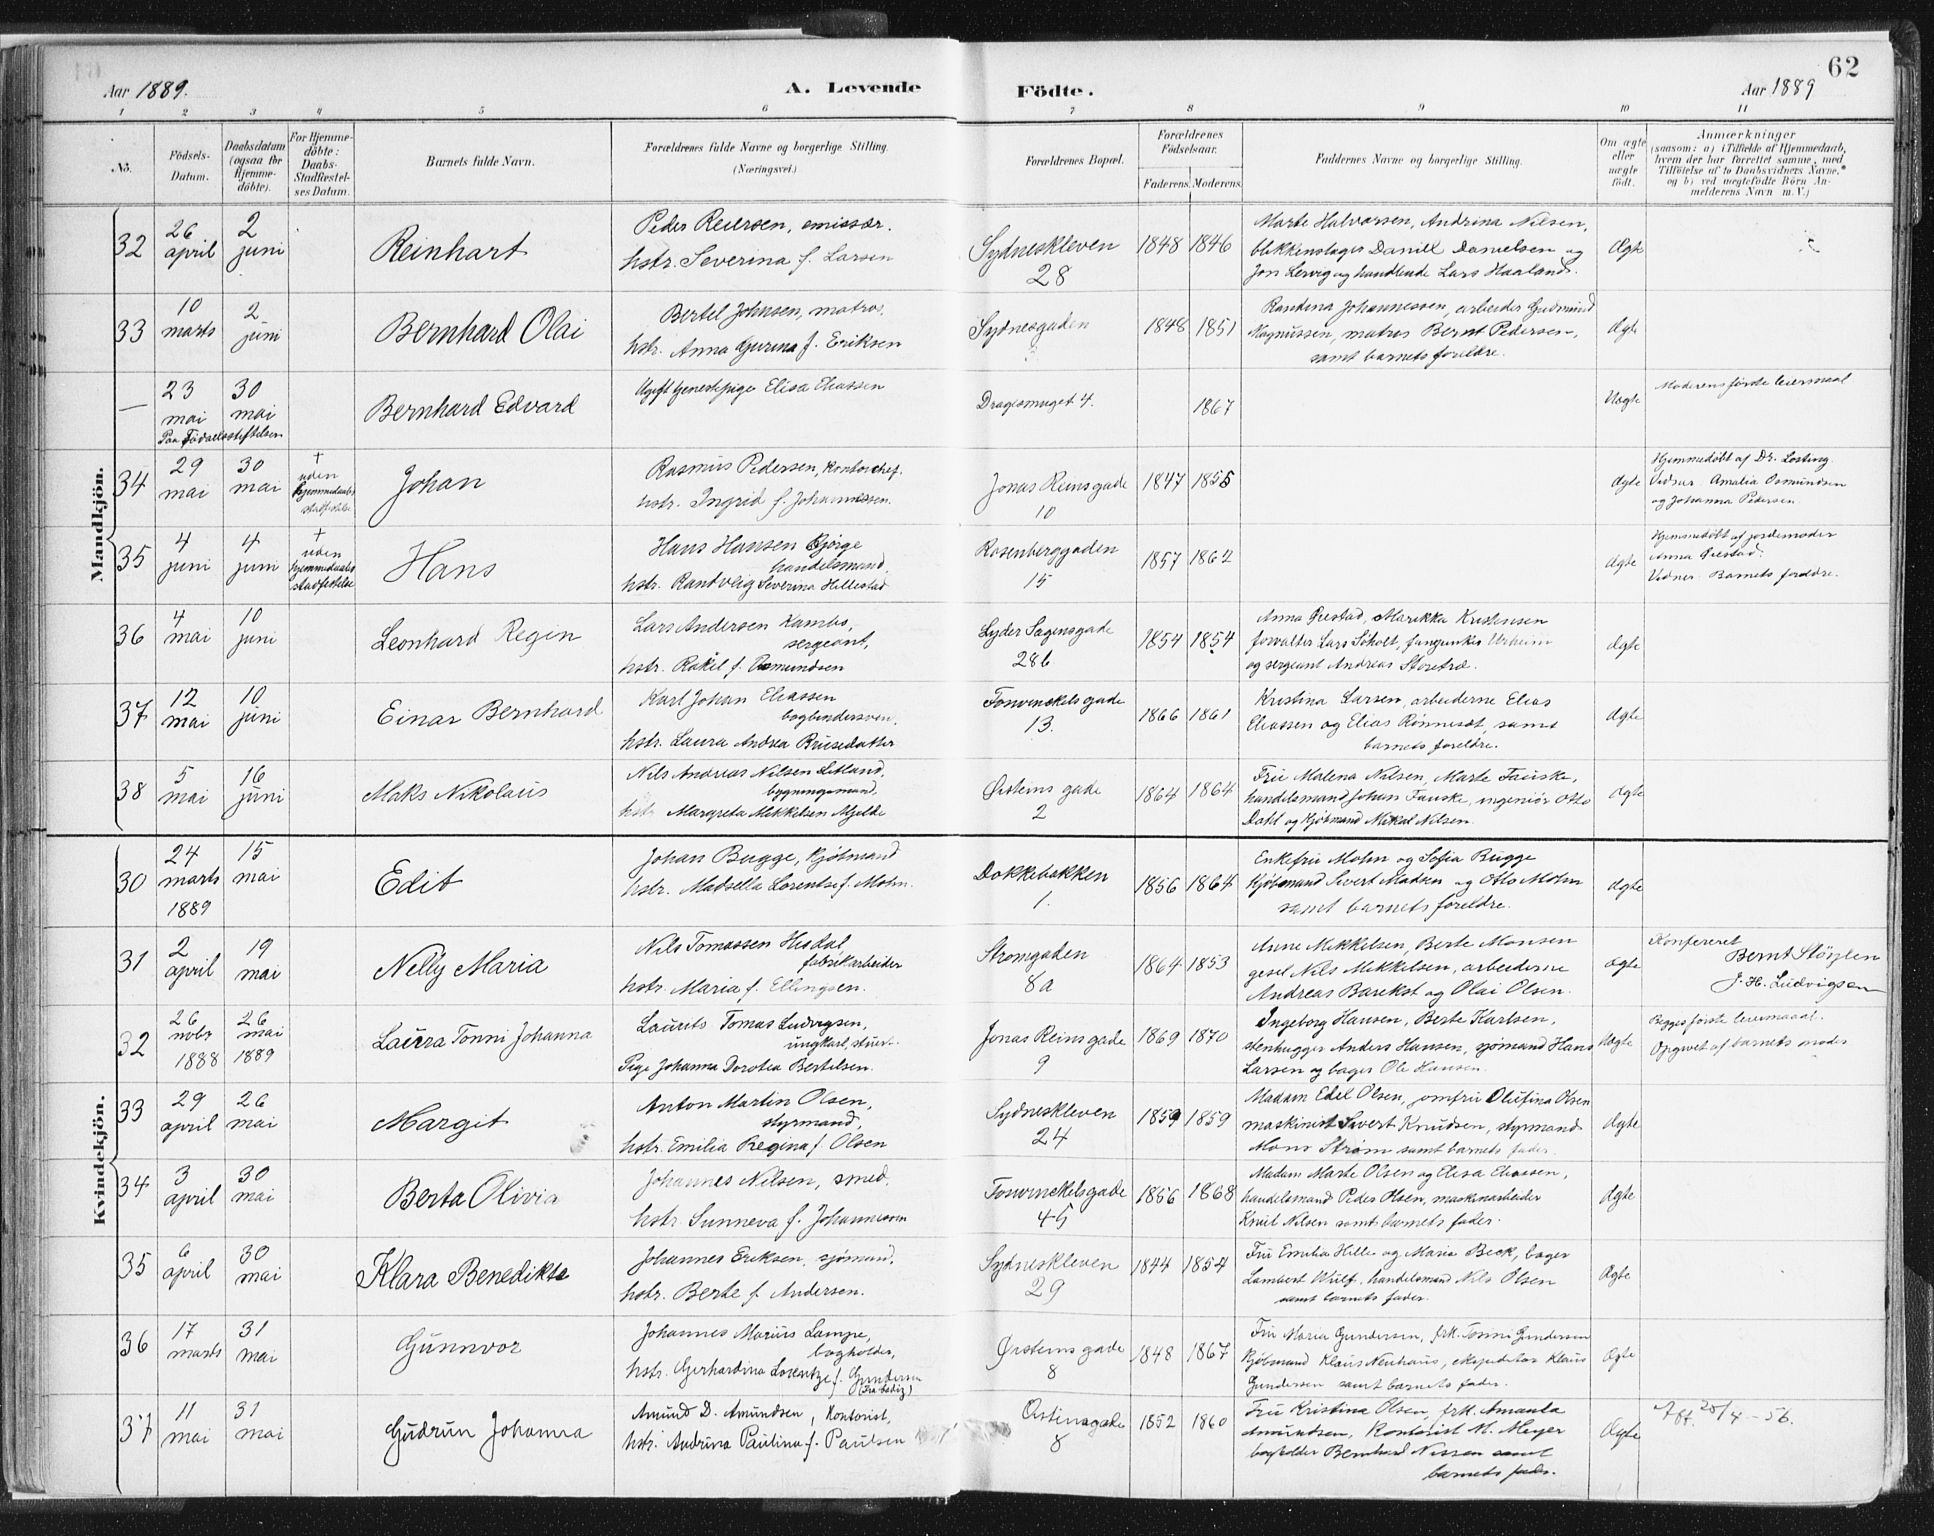 62
Aar 1889.
A. Levende Födte.
Aar 1889
1 2 3 4 5 6 7 8 9 10 11
No.
Födsels-Datum.
Daabsdatum (ogsaa for Hjemmedöbte).
For Hjemmedöbte: Daabs-Stadfæstelses Datum.
Barnets fulde Navn.
Forældrenes fulde Navne og borgerlige Stilling. (Næringsvei.)
Forældrenes Bopæl.
Forældrenes Födselsaar.
Faderens. Moderens.
Faddernes Navne og borgerlige Stilling.
Om ægte eller uægte födt.
Anmærkninger
(saasom: a) i Tilfælde af Hjemmedaab, hvem der har forrettet samme, med Tilföielse af to Daabsvidners Navne, og b) ved uægtefödte Börn Anmelderens Navn m. V.)
Mandkjön.
32 26 april 2 juni Reinhart
Peder Reiersen, emissær.
hstr. Severina f. Larsen
Sydneskleven 28 1848 1846
Marte Halvorsen, Andrina Nilsen,
blikkenslager Daniel Danielsen og
Jon Lervig og handlende Lars Haaland.
Ægte
33 10 marts 2 juni Bernhard Olai
Bertel Johnsen, matros,
hstr. Anna Gurina f. Eriksen
Sydnesgaden 1848 1851
Randina Johannessen, arbeider Gudmund
Magnussen, matros Bernt Pedersen,
samt barnets foreldre.
Ægte
— 23 mai 30 mai Bernhard Edvard
Paa Fødselsstiftelsen
Ugift tjenestepige Elisa Eliassen
Dragesmuget 4. 1867
Uægte
Moderens første leiermaal
34 29 mai 30 mai † uden hjemmedaabs stadfestelse Johan
Rasmus Pedersen, kontorchef.
hstr. Ingrid f. Johannessen.
Jonas Reinsgade 10 1847 1855
Ægte
Hjemmedøbt af Dr. Losting.
Vidner Amalia Osmundsen
og Johanna Pedersen.
35 4 juni 4 juni † uden hjemmedaabs stadfestelse Hans
Hans Hansen Gjörge
handelsmand
hstr. Randvlig Severina Hillestad
Rosenberggaden 15 1857 1862
Ægte
Hjemmedøbt af jordemoder
Anna Ørestad.
Vidner Barnets foreldre.
36 4 mai 10 juni Leonhard Regin
Lars Andersen Kambo,
sergeant,
hstr. Rakel f. Osmundsen
Lyder Sagensgade 28b 1854 1854
Anna Ørestad, Marikka Kristensen
forvalter Lars Söholt,
og sergeant Andreas Storetræ.
Ægte
37 12 mai 10 juni Einar Bernhard
Karl Johan Eliassen
bogbindersven,
hstr. Laura Andrea Brusedatter
Fosvinckelsgade 13. 1866 1861
Kristina Larsen, arbeiderne Elias
Eliassen og Elias Rønnesæt, samt
barnets foreldre.
Ægte
38 5 mai 16 juni Maks Nikolaus
Nils Andreas Nilsen Litland,
bygningsmand,
hstr. Margreta Mikkelsen Mjelde
Ørsteins gade 2 1864 1864
Fru Malena Nilsen, Marte Fauske,
handelsmand Johan Fauske, ingeniör Otto
Dahl og kjöbmand Mikal Nilsen.
Ægte
Kvindekjön.
30 24 marts 1889 15 mai Edit
Johan Bugge, kjöbmand
hstr. Madsella Lorentse f. Mohn.
Dokkebakken 1. 1856 1864
Enkefru Mohn og Sofia Bugge
kjöbmand Sivert Madsen og Otto Mohn
samt barnets foreldre.
Ægte
31 2 april 19 mai Nelly Maria
Nils Tomassen Hisdal
fabrikarbeider
hstr. Maria f. Ellingsen.
Strømgaden 8a 1864 1853
Anne Mikkelsen, Berte Monsen
gesel Nils Mikkelsen, arbeiderne
Andreas Barekst og Olai Olsen.
Ægte
Konfereret
Bernt Støylen
J. H. Ludvigsen
32 26 novbr 1888 26 mai 1889 Laura Tonni Johanna
Laurits Tomas Ludvigsen,
ungkarl, stuert.
Pige Johanna Dorotea Bertelsen.
Jonas Reins gade 9 1869 1870
Ingeborg Hansen, Berte Karlsen,
stenhugger Anders Hansen, sjömand Hans
Larsen og bager Ole Hansen.
Uægte
Begges første leiermaal.
Opgivet af barnets moder
33 29 april 26 mai Margit
Anton Martin Olsen,
styrmand,
hstr. Emilia Regina f. Olsen
Sydneskleven 24 1859 1859
Madam Edel Olsen, jomfru Olufina Olsen
maskinist Sivert Knudsen, styrmand
Mons Strøm samt barnets fader.
Ægte
34 3 april 30 mai Berta Olivia
Johannes Nilsen, smed.
hstr. Sunneva f. Johannessen
Fosvinckelsgade 45 1856 1868
Madam Marte Olsen og Elisa Eliassen,
handelsmand Peder Olsen, maskinarbeider
Knut Nilsen samt barnets fader.
Ægte
35 6 april 30 mai Klara Benedikte
Johannes Eriksen, sjömand,
hstr. Berte f. Andersen.
Sydneskleven 29 1844 1854
Fru Emilia Hille og Maria Beck, bager
Lambert Wulf, handelsmand Nils Olsen
samt barnets fader.
Ægte
36 17 marts 31 mai Gunnvor
Johannes Marius Lampe,
bogholder,
hstr. Gjerhardina Lorentze f. Gundersen
Ørsteins gade 8 1848 1867
Fru Maria Gundersen, frk. Tonni Gundersen
kjöbmand Klaus Neuhaus, ekspeditør Klaus
Gundersen samt barnets fader.
Ægte
37 11 mai 31 mai Gudrun Johanna
Amund D. Amundsen, kontorist,
hstr. Andrina Paulina f. Paulsen
Østinsgade 8 1852 1860
Fru Kristina Olsen, frk. Amanta
Amundsen, Kontorist M. Meyer
bogholder Bernhard Nissen samt
barnets fader.
Ægte
Att. 25/4 - 56.